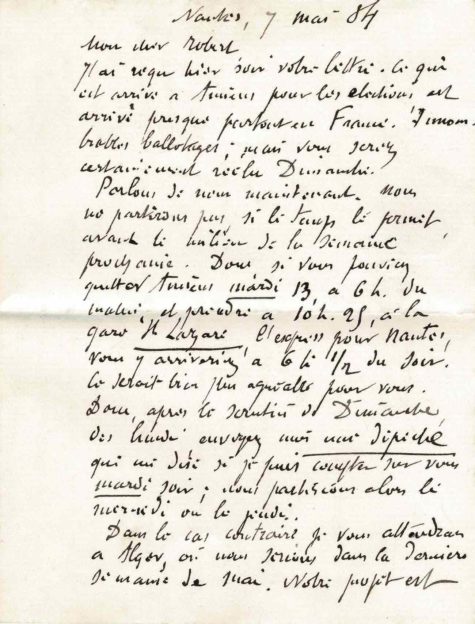 Nantes, 7 mai 84
Mon cher Robert
J'ai reçu hier soir votre lettre. Ce qui
est arrivé à Amiens pour les élections est
arrivé presque partout en France. Innom-
brables ballotages ; mais vous serez
certainement réélu Dimanche.
Parlons de nous maintenant. Nous
ne partirons pas si le temps le permet,
avant le milieu de la semaine
prochaine. Donc si vous pouviez
quitter Amiens mardi 13, à 6 h. du
matin, et prendre à 10 h. 25, à la
gare St Lazare, l'express pour Nantes,
vous y arriveriez à 6 h 1/2 du soir.
Ce serait bien plus agréable pour vous.
Donc, après le scrutin de Dimanche,
dès lundi envoyez moi une dépêche
qui me dise si je puis compter sur vous
mardi soir ; nous partirions alors le
mercredi ou le jeudi.
Dans le cas contraire je vous attendrai
à Alger, où nous serions dans la dernière
semaine de mai. Notre projet est